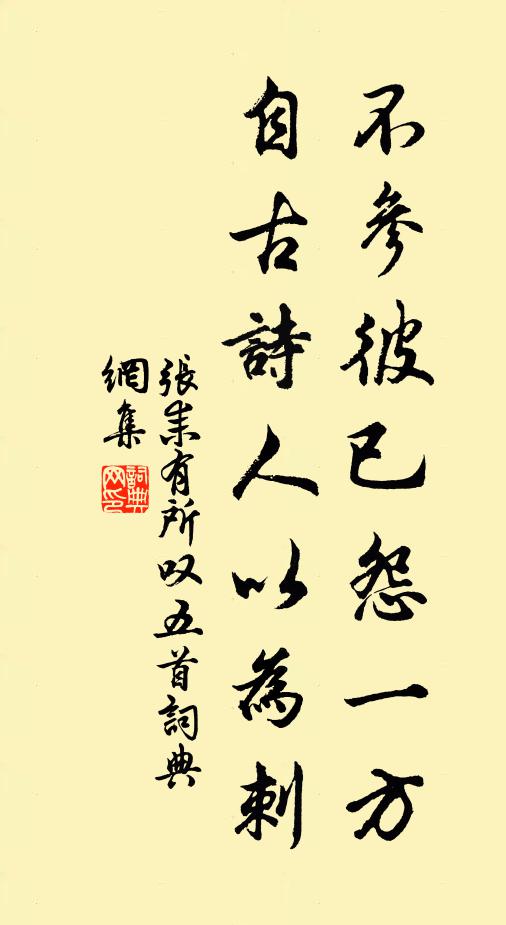 不參彼已怨一方
自古詩人以為刺
張耒有所叹五首詞典
網集
詞典
网印